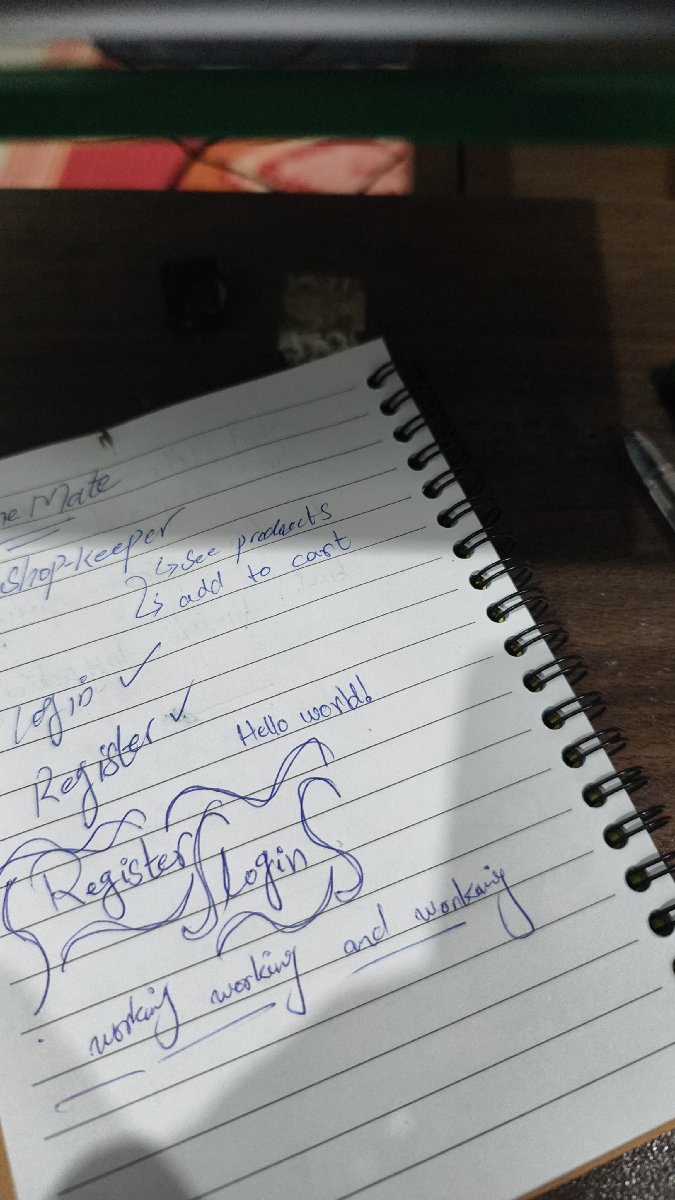 Mate
shop-keeper
↳ see products
↳ add to cart
Login ✓
Register ✓
Hello world!
Register Login
working working and working